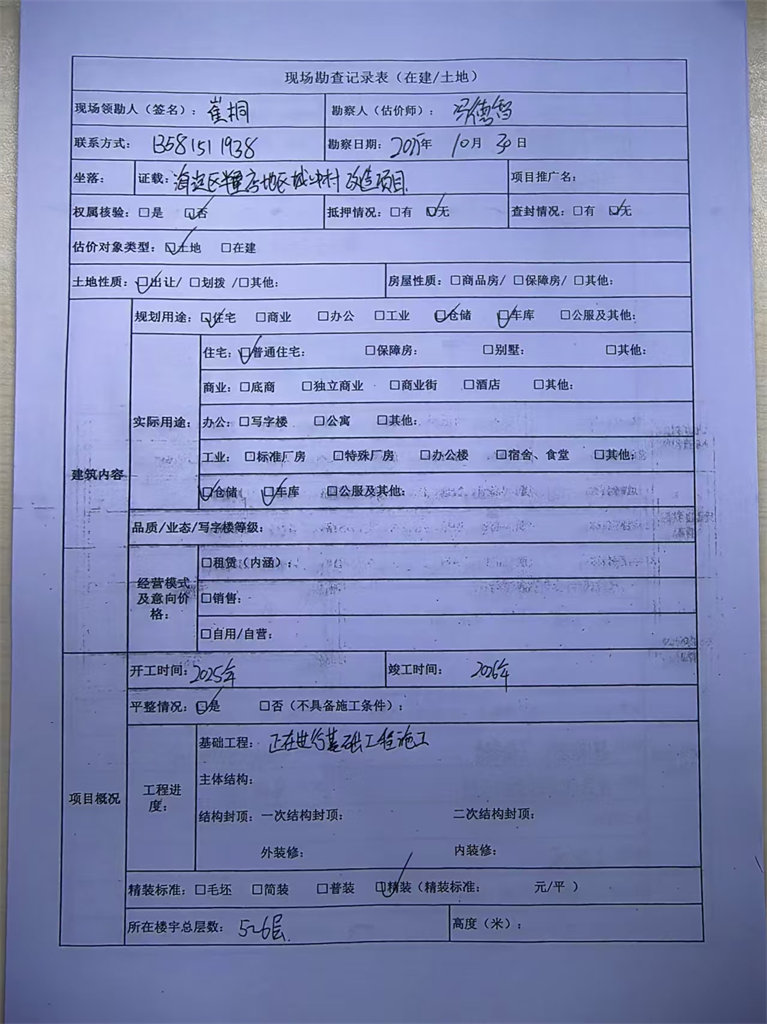 现场勘查记录表（在建/土地）
现场领勘人（签名）：崔桐 勘察人（估价师）：冯德智
联系方式：13581511938 勘察日期：2025年 10月 30日
坐落： 证载：海淀区 地区城中村改造项目 项目推广名：
权属核验：□是 ☑否 抵押情况：□有 ☑无 查封情况：□有 ☑无
估价对象类型：☑土地 □在建
土地性质：☑出让/ □划拨 /□其他： 房屋性质：□商品房/ □保障房/ □其他：
建筑内容
规划用途：☑住宅 □商业 □办公 □工业 ☑仓储 ☑车库 □公服及其他：
实际用途：
住宅：☑普通住宅： □保障房： □别墅： □其他：
商业：□底商 □独立商业 □商业街 □酒店 □其他：
办公：□写字楼 □公寓 □其他：
工业： □标准厂房 □特殊厂房 □办公楼 □宿舍、食堂 □其他：
☑仓储 ☑车库 □公服及其他：
品质/业态/写字楼等级：
经营模式及意向价格：
□租赁（内涵）：
□销售：
□自用/自营：
项目概况
开工时间：2025年 竣工时间： 2026年
平整情况：☑是 □否（不具备施工条件）：
工程进度：
基础工程： 正在进行基础工程施工
主体结构：
结构封顶：一次结构封顶： 二次结构封顶：
外装修： 内装修：
精装标准：□毛坯 □简装 □普装 ☑精装（精装标准： 元/平 ）
所在楼宇总层数： 5-6层 高度（米）：